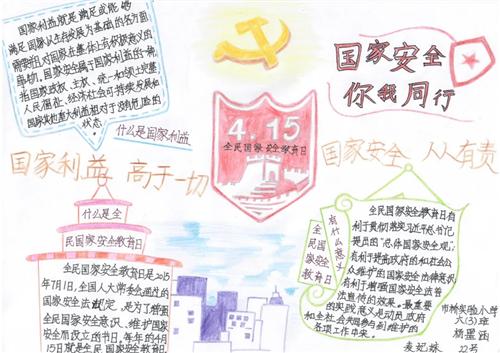 国家利益就是满足或能够
满足国家以生存发展为基础的各方面
需要并且对国家在整体上有好处的
事物。国家安全是指国家
政权、主权、统一和领土完整
人民福祉、经济社会可持续发展和
国家其他重大利益相对于没有危险的
状态。
什么是国家利益
国家安全
你我同行
4.15
全民国家安全教育日
国家利益 高于一切
国家安全 人人有责
什么是全
民国家安全教育日
全民国家安全教育日是2015
年7月1日,全国人大常委会通过的
国家安全法规定,是为了增强
全民国家安全意识、维护国家
安全而设立的节日。每年的4月
15日就是全民国家安全教育日
有什么意义
全民国家安全教育日
全民国家安全教育日有
利于贯彻落实习近平总书记
提出的“总体国家安全观”;
有利于提高政府的和社会公
众维护的国家安全法律意识,
有利于增强国家安全法普
法宣传的效果。最重要
的实践意义是动员政府
和全社会共同参与到维护的
各项工作中来。
市桥实验小学
六(3)班
22号